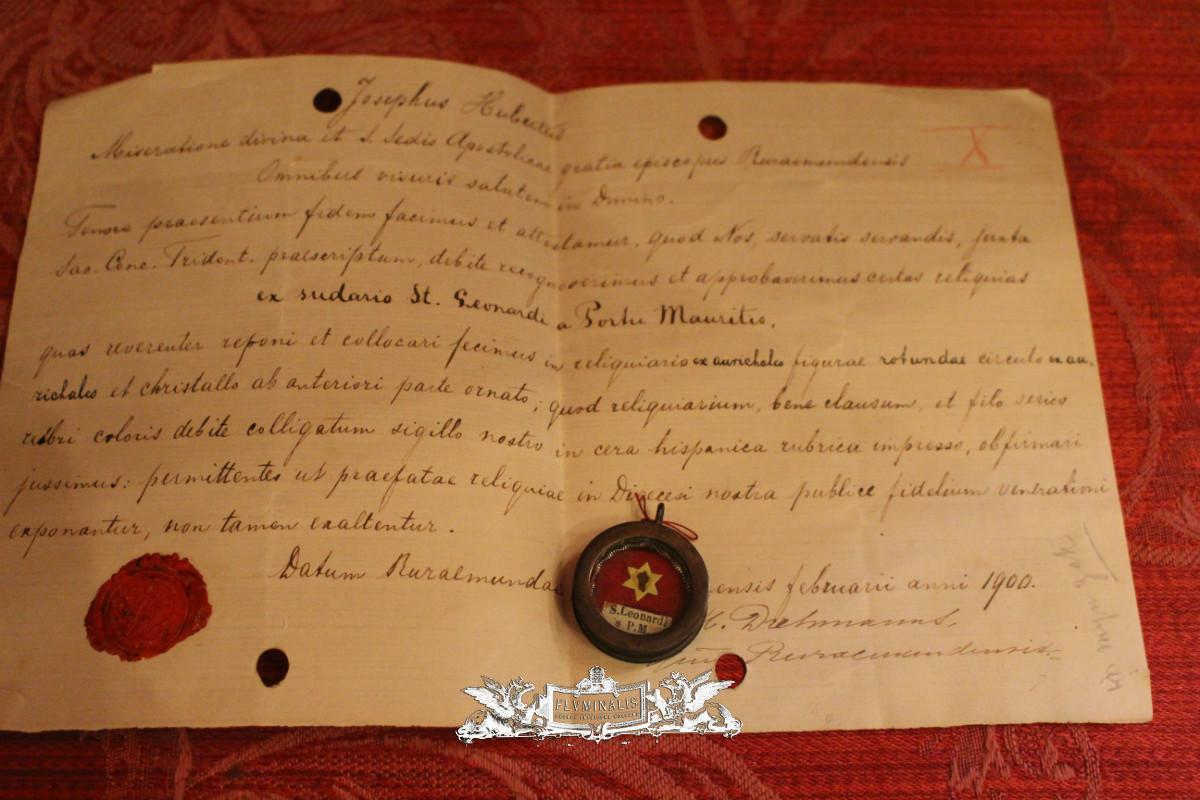 Josephus Hubertus
Miseratione divina et S. Sedis Apostolicae gratia episcopus Ruraemundensis
Omnibus visuris salutem in Domino.
Tenore praesentium fidem facimus et attestamur, quod Nos, servatis servandis, juxta
Sac. Conc. Trident. praescriptum, debite recognoverimus et approbaverimus certas reliquias
ex sudario St. Leonardi a Portu Mauritio,
quas reverenter reponi et collocari fecimus in reliquiario ex aurichalco figurae rotundae circulo ex au-
richalco et christallo ab anteriori parte ornato; quod reliquiarium, bene clausum, et filo serico
rubri coloris debite colligatum sigillo nostro in cera hispanica rubrica impresso, obfirmari
jussimus: permittentes ut praefatae reliquiae in Dioecesi nostra publice fidelium venerationi
exponantur, non tamen exaltentur.
Datum Ruraemundae ensis februarii anni 1900.
Ruraemundensis
X
S. Leonardi
a P. M
FLVMINALIS